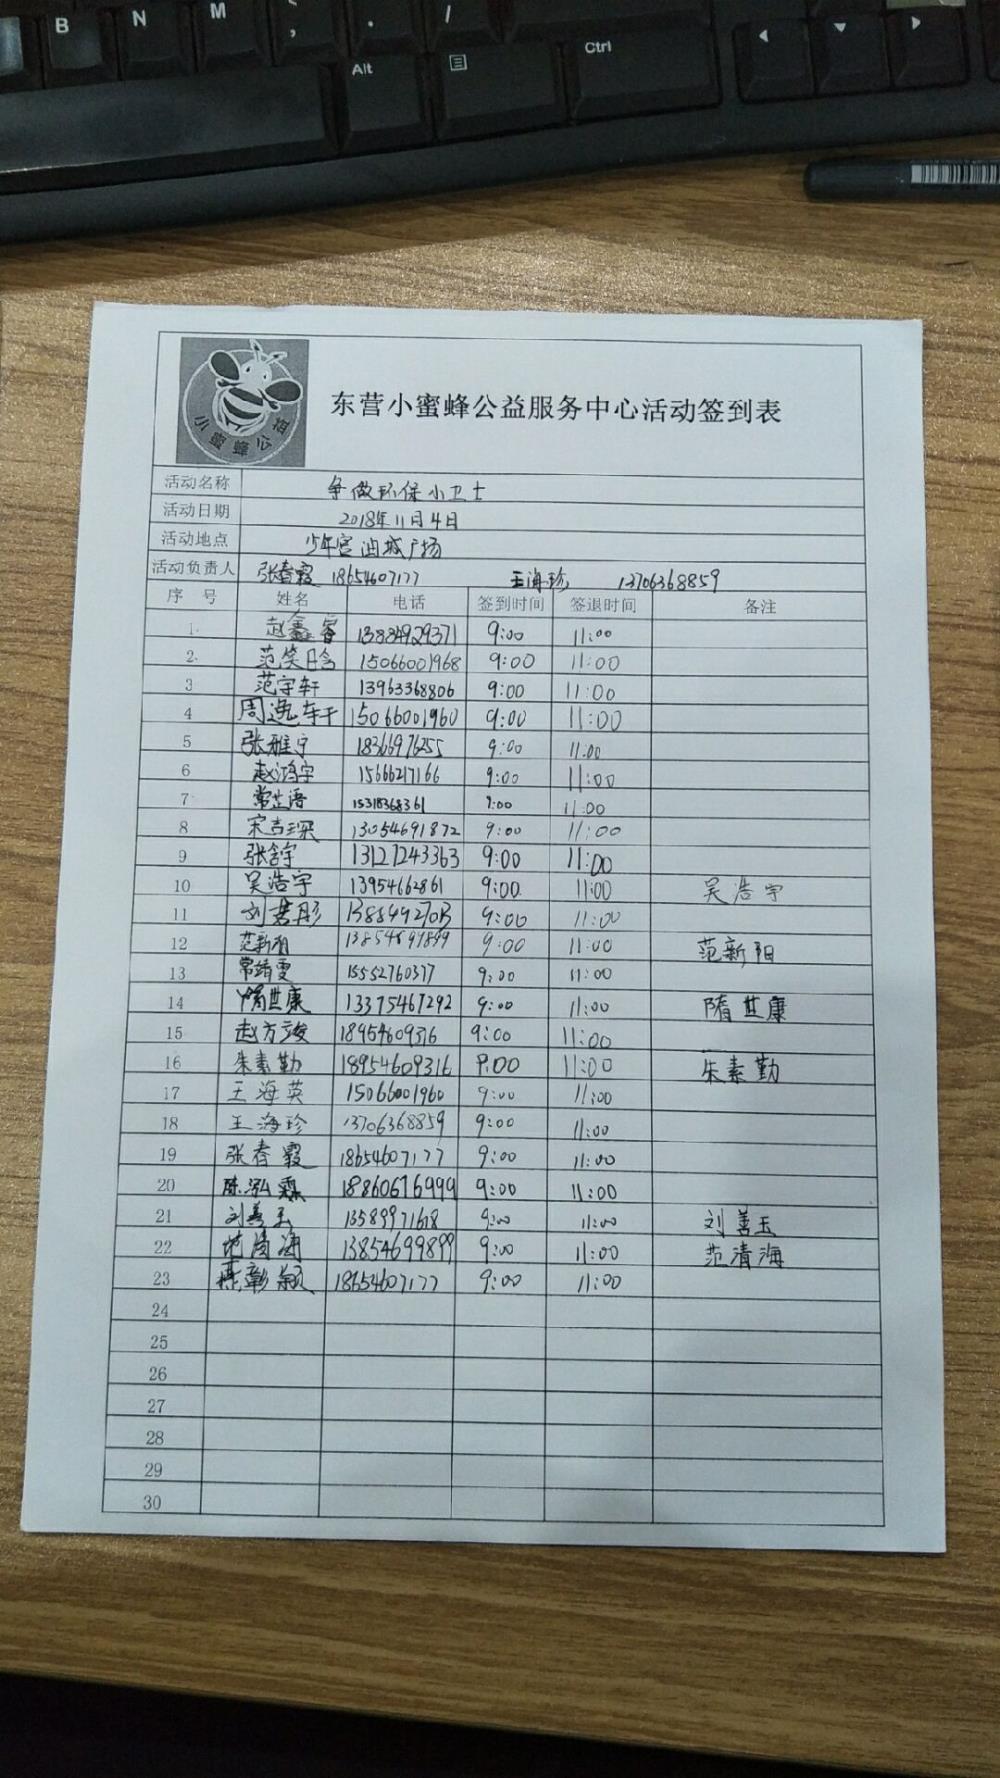 B N M , . /
Alt Ctrl
小蜜蜂公益
东营小蜜蜂公益服务中心活动签到表
活动名称 争做环保小卫士
活动日期 2018年11月4日
活动地点 少年宫油城广场
活动负责人 张春霞 18654607177 王海珍 13706368859
序号 姓名 电话 签到时间 签退时间 备注
1 赵鑫睿 13884929371 9:00 11:00
2 范笑晗 15066001968 9:00 11:00
3 范宇轩 13963368806 9:00 11:00
4 周逸轩 15066001960 9:00 11:00
5 张雅宁 18366976255 9:00 11:00
6 赵鸿宇 15666217166 9:00 11:00
7 常芷语 15318368361 9:00 11:00
8 宋吉琛 13054691872 9:00 11:00
9 13127243363 9:00 11:00
10 吴浩宇 13954662861 9:00 11:00 吴浩宇
11 刘君彤 9:00 11:00
12 范新阳 13854699899 9:00 11:00 范新阳
13 常靖雯 15552760377 9:00 11:00
14 隋世康 13375467292 9:00 11:00 隋世康
15 18954609316 9:00 11:00
16 朱素勤 18954609316 9:00 11:00 朱素勤
17 王海英 15066001960 9:00 11:00
18 王海珍 13706368859 9:00 11:00
19 张春霞 18654607177 9:00 11:00
20 陈泓霖 18860676999 9:00 11:00
21 刘善玉 13589971618 9:00 11:00 刘善玉
22 范清海 13854699899 9:00 11:00 范清海
23 燕彰颖 18654607177 9:00 11:00
24
25
26
27
28
29
30